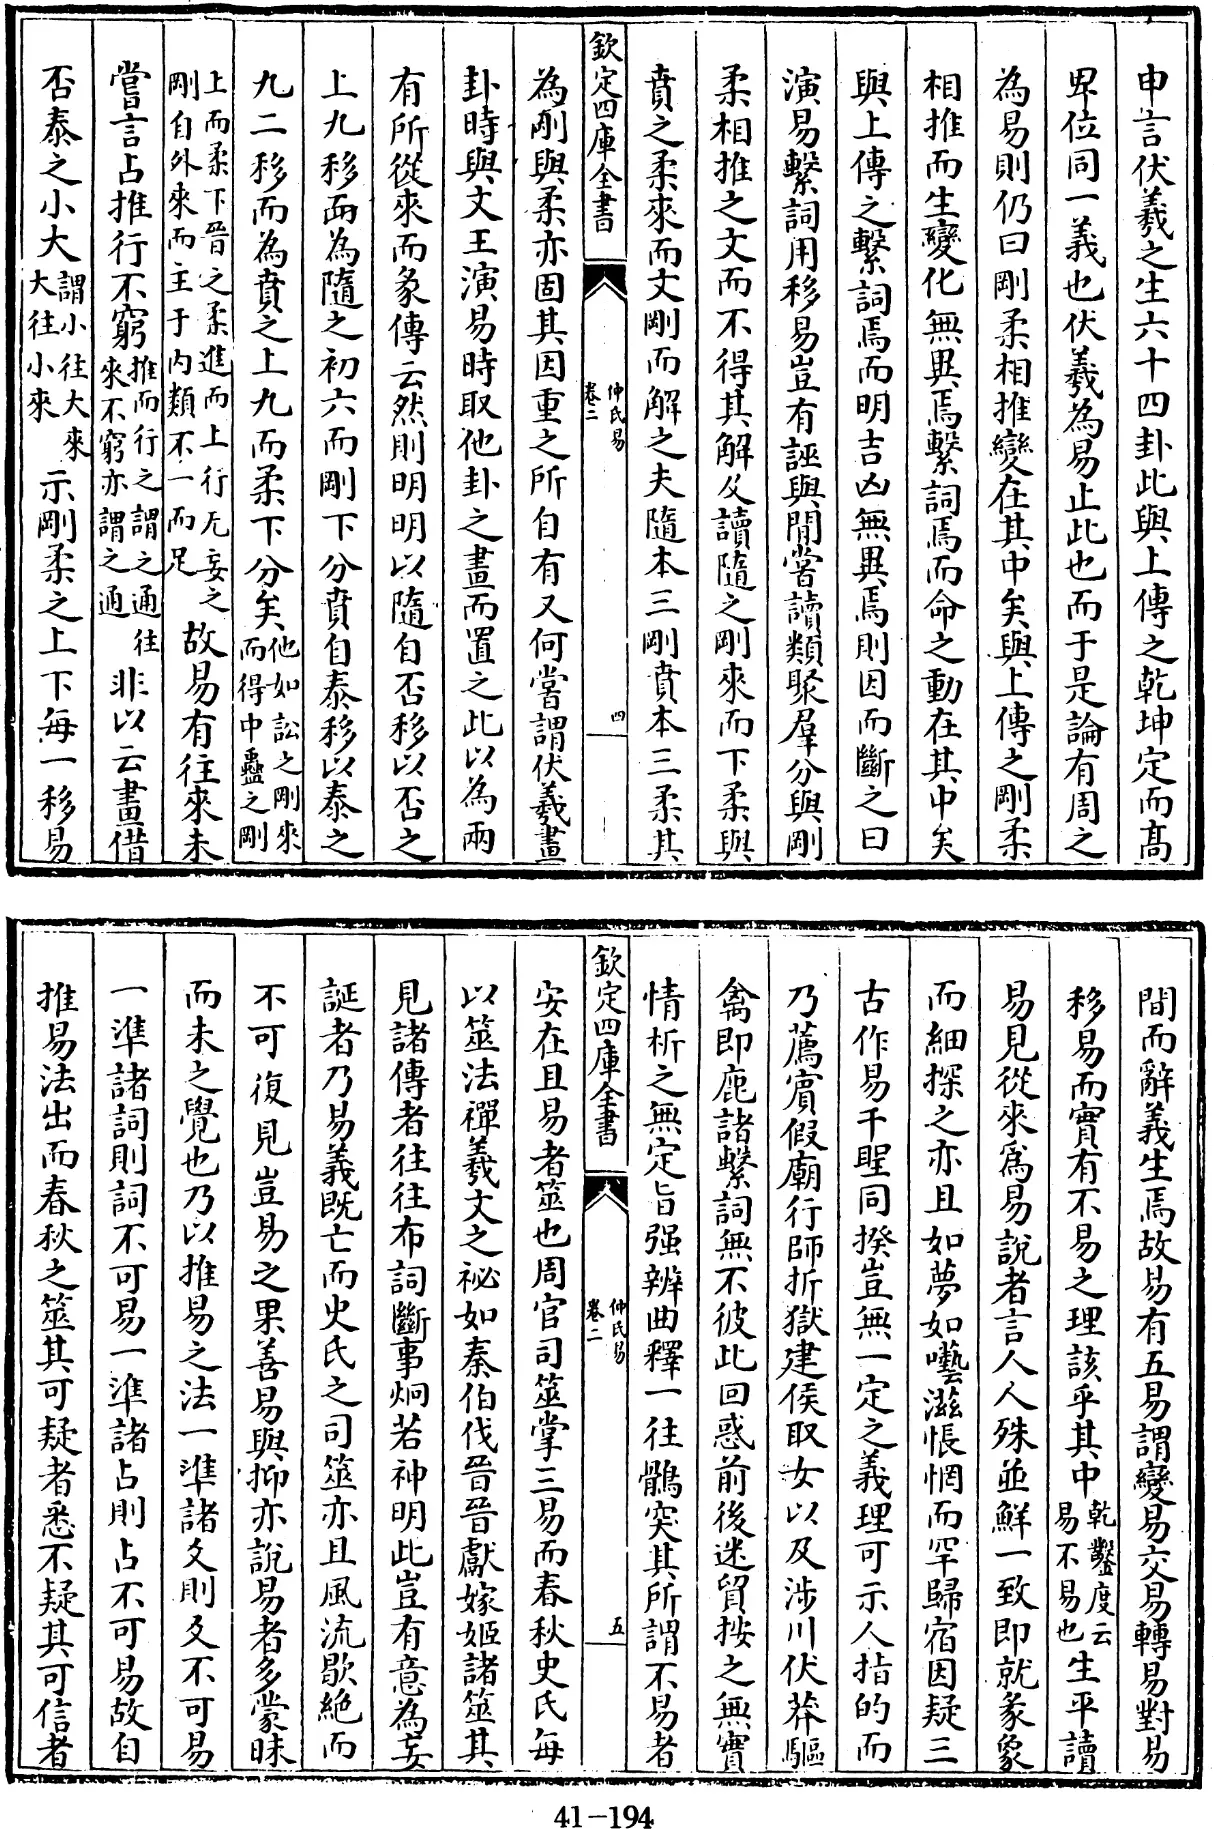 申言伏羲之生六十四卦此與上傳之乾坤定而髙
卑位同一義也伏羲為易止此也而于是論有周之
為易則仍曰剛柔相推變在其中矣與上傳之剛柔
相推而生變化無異焉繫詞焉而命之動在其中矣
與上傳之繫詞焉而明吉凶無異焉則因而斷之曰
演易繫詞用移易豈有誣與間嘗讀類聚羣分與剛
柔相推之文而不得其解及讀隨之剛來而下柔與
賁之柔來而文剛而解之夫隨本三剛賁本三柔其
欽定四庫全書
仲氏易
卷二
四
為剛與柔亦固其因重之所自有又何嘗謂伏羲畫
卦時與文王演易時取他卦之畫而置之此以為兩
有所從來而彖傳云然則明明以隨自否移以否之
上九移而為隨之初六而剛下分賁自泰移以泰之
九二移而為賁之上九而柔下分矣他如訟之剛來
而得中蠱之剛
上而柔下晉之柔進而上行无妄之
剛自外來而主于内類不一而足故易有往來未
嘗言占推行不窮推而行之謂之通往
來不窮亦謂之通非以云畫借
否泰之小大謂小往大來
大往小來示剛柔之上下每一移易
間而辭義生焉故易有五易謂變易交易轉易對易
移易而實有不易之理該乎其中乾鑿度云
易不易也生平讀
易見從來為易說者言人人殊並鮮一致即就彖象
而細探之亦且如夢如囈滋悵惘而罕歸宿因疑三
古作易千聖同揆豈無一定之義理可示人指的而
乃薦賓假廟行師折獄建侯取女以及涉川伏莽驅
禽即鹿諸繫詞無不彼此回惑前後迷貿按之無實
情析之無定旨强辨曲釋一往鶻突其所謂不易者
欽定四庫全書
仲氏易
卷二
五
安在且易者筮也周官司筮掌三易而春秋史氏每
以筮法禪羲文之祕如秦伯伐晉晉獻嫁姬諸筮其
見諸傳者往往布詞斷事炯若神明此豈有意為妄
誕者乃易義既亡而史氏之司筮亦且風流歇絶而
不可復見豈易之果善易與抑亦說易者多蒙昧
而未之覺也乃以推易之法一準諸爻則爻不可易
一準諸詞則詞不可易一準諸占則占不可易故自
推易法出而春秋之筮其可疑者悉不疑其可信者
41-194